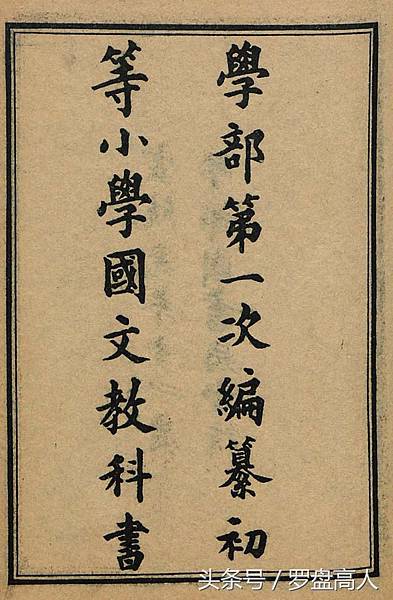 學部第一次編纂初
等小學國文教科書
头条号 / 罗盘高人